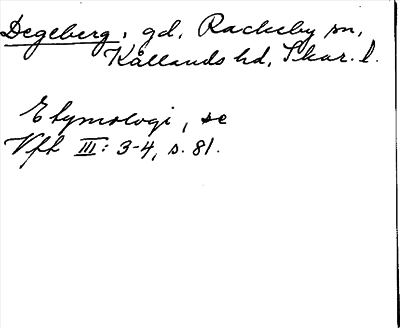 Degeberg, gd, Rackeby sn,
Kållands hd, Skar. l.
Etymologi, se
Vfh III: 3-4, s. 81.